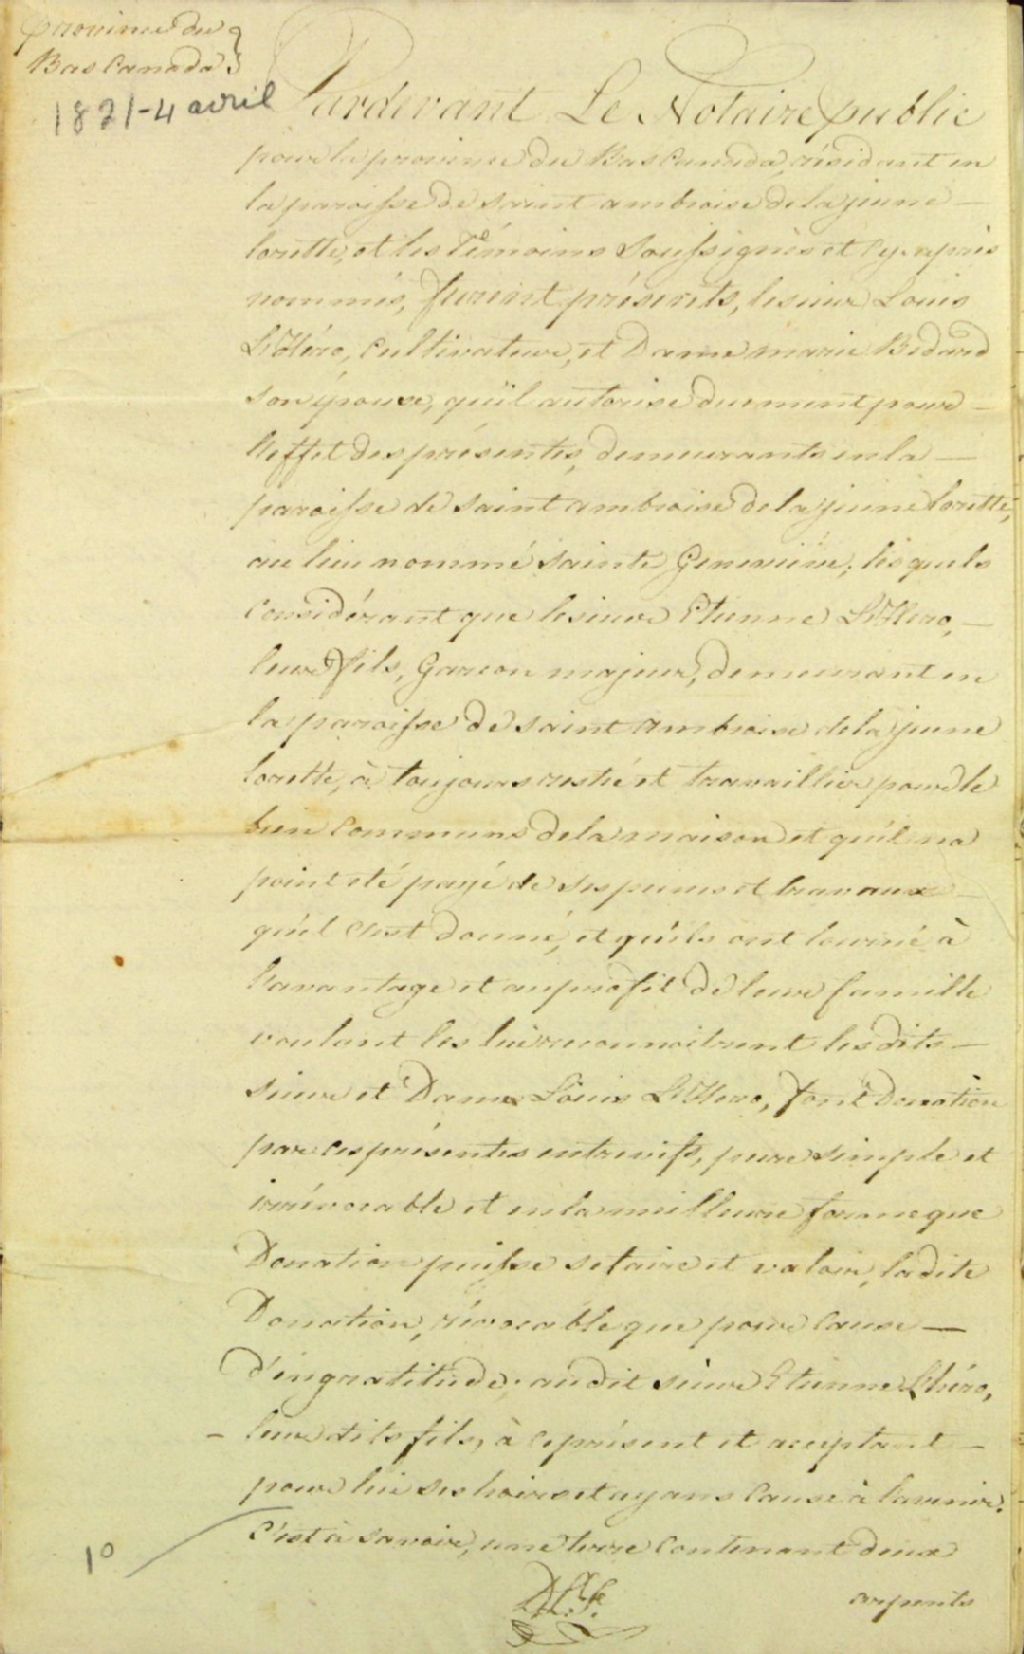 Province du
Bas Canada
1821-4 avril
Pardevant Le Notaire public
pour la province du Bas Canada, résidant en
la paroisse de Saint ambroise de la jeune
lorette, et les Témoins Soussignés et Cy-après
nommés, furent présents, le sieur Louis
L'Héro, Cultivateur, et Dame marie Bedard
son épouse, qu'il autorise duement pour
l'effet des présentes, demeurants en la
paroisse de Saint ambroise de la jeune lorette,
au lieu nommé Sainte Genevieve; lesquels
Considérant que le sieur Etienne L'Hero,
leur fils, Garcon majeur, demeurant en
la paroisse de Saint Ambroise de la jeune
lorette, à toujours resté et travaillier pour le
bien Communs de la maison et qu'il na
point été payé de ses peines et travaux
qu'il C'est donné, et qu'ils ont tourné à
l'avantage et au profit de leur famille
voulant les lui reconnoitrent les dits
sieur et Dame Louis L'Hero, font Donation
par ces présentes entrevifs, pure simple et
irrévocable et en la meilleure forme que
Donation puisse se faire et valoir, la dite
Donation, révocable que pour Cause
d'ingratitude; au dit sieur Etienne Lhéro,
leur dits fils, à ce présent et acceptant
pour lui ses hoirs et ayans Cause à l'avenir.
C'est à savoir, une terre Contenant deux
1º
arpents